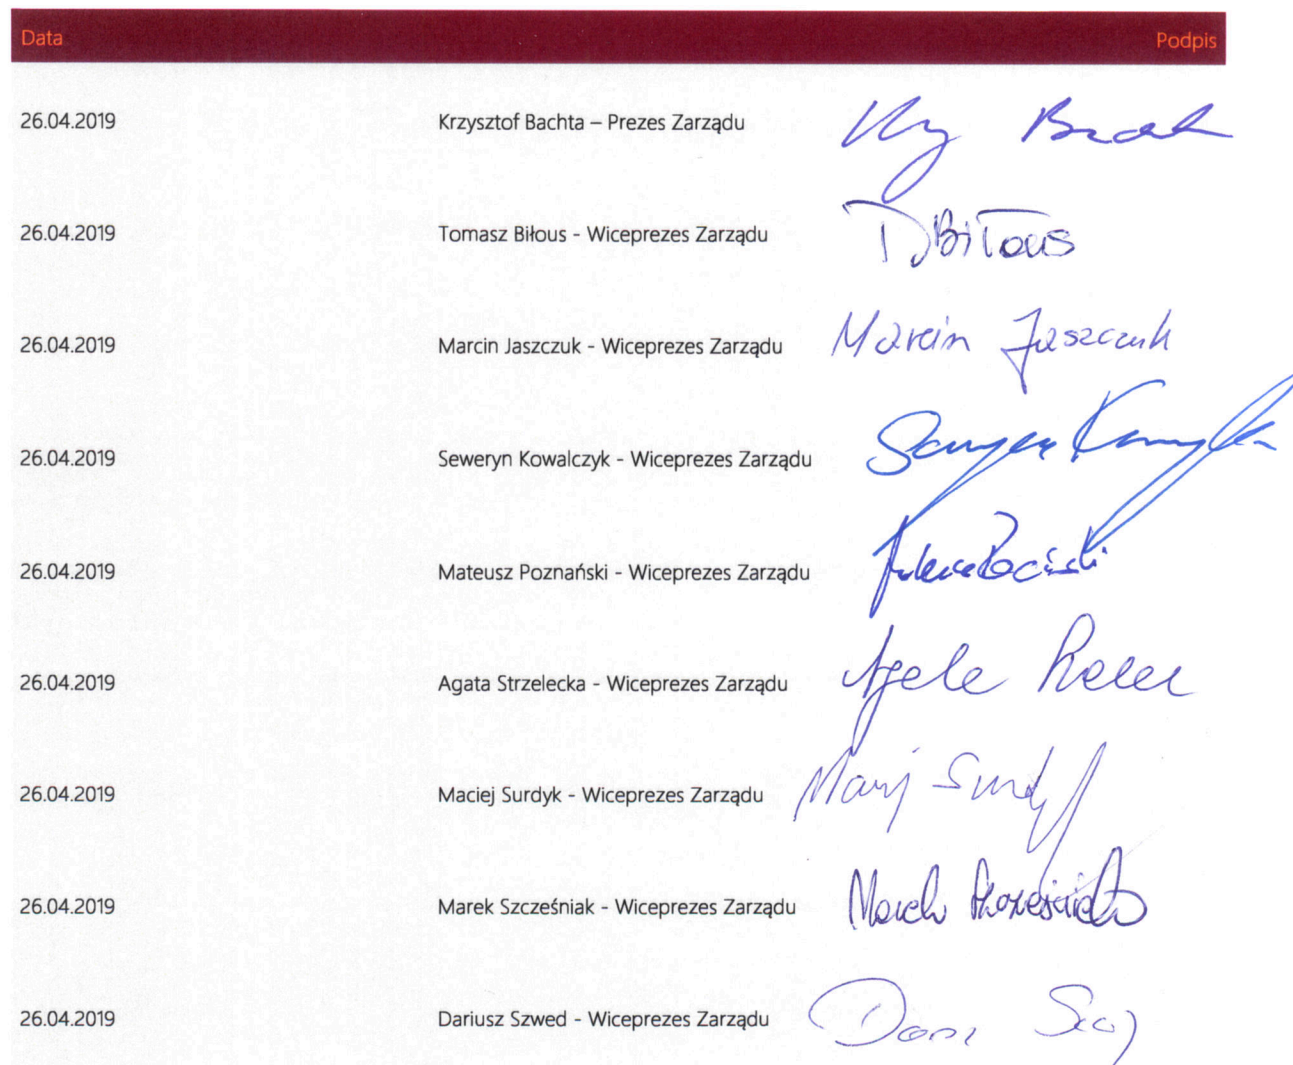 Data Podpis
26.04.2019 Krzysztof Bachta – Prezes Zarządu
26.04.2019 Tomasz Biłous - Wiceprezes Zarządu TBiłous
26.04.2019 Marcin Jaszczuk - Wiceprezes Zarządu Marcin Jaszczuk
26.04.2019 Seweryn Kowalczyk - Wiceprezes Zarządu
26.04.2019 Mateusz Poznański - Wiceprezes Zarządu
26.04.2019 Agata Strzelecka - Wiceprezes Zarządu
26.04.2019 Maciej Surdyk - Wiceprezes Zarządu
26.04.2019 Marek Szcześniak - Wiceprezes Zarządu
26.04.2019 Dariusz Szwed - Wiceprezes Zarządu